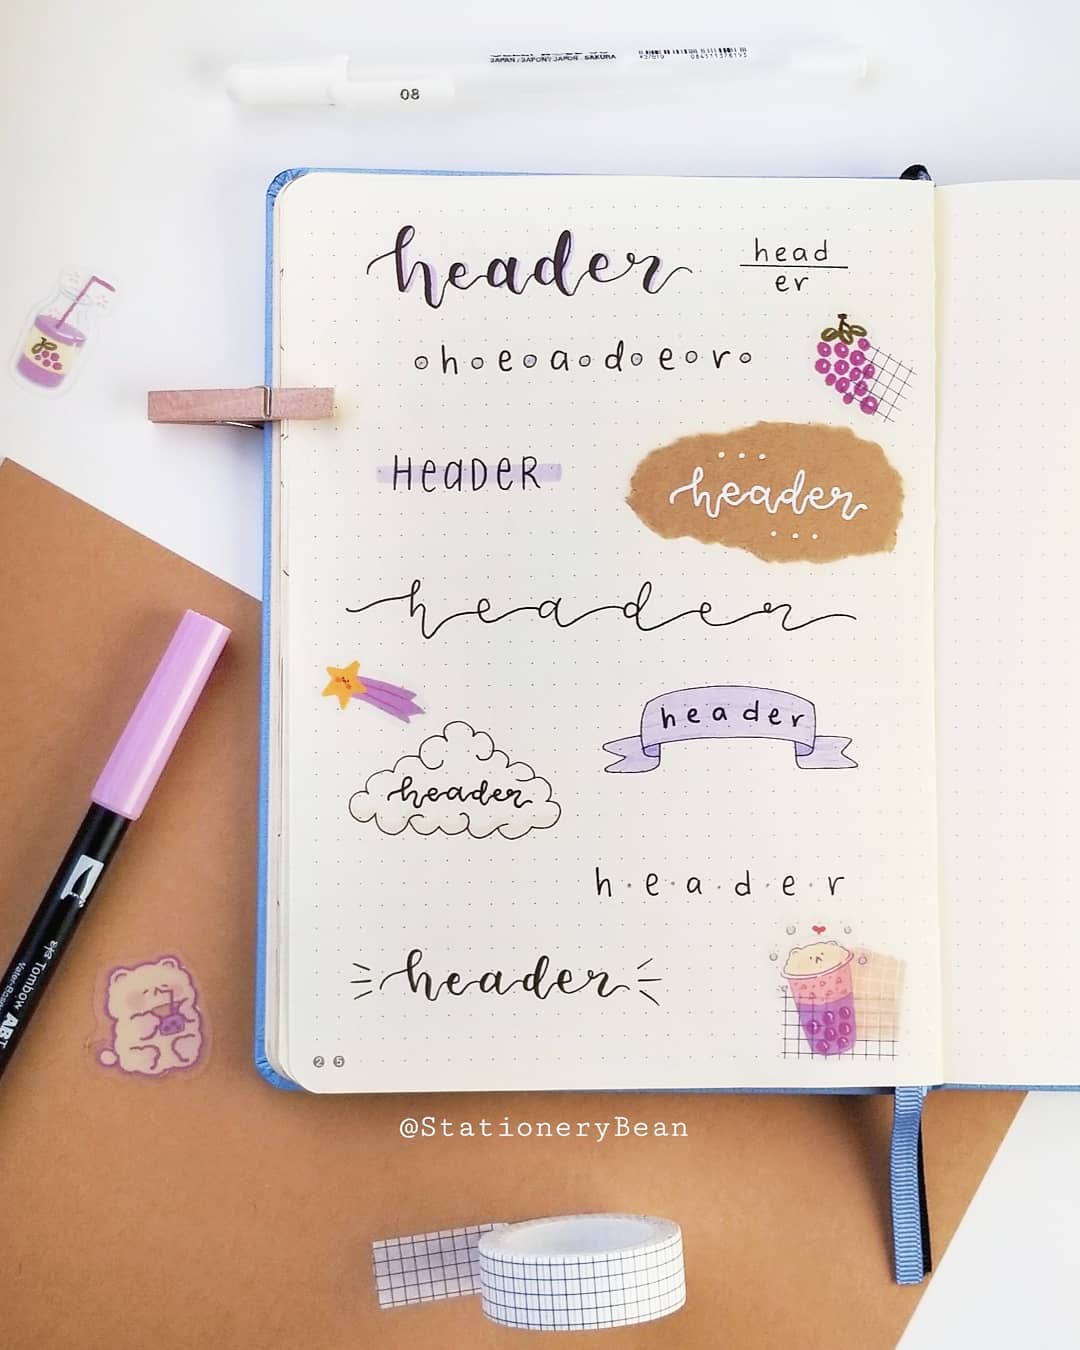 08
JAPAN / JAPON / JAPÓN · SAKURA
#37819 084511378193
header
head
er
h e a d e r
HeaDeR
header
header
header
header
h · e · a · d · e · r
header
25
@StationeryBean
Tombow ABT